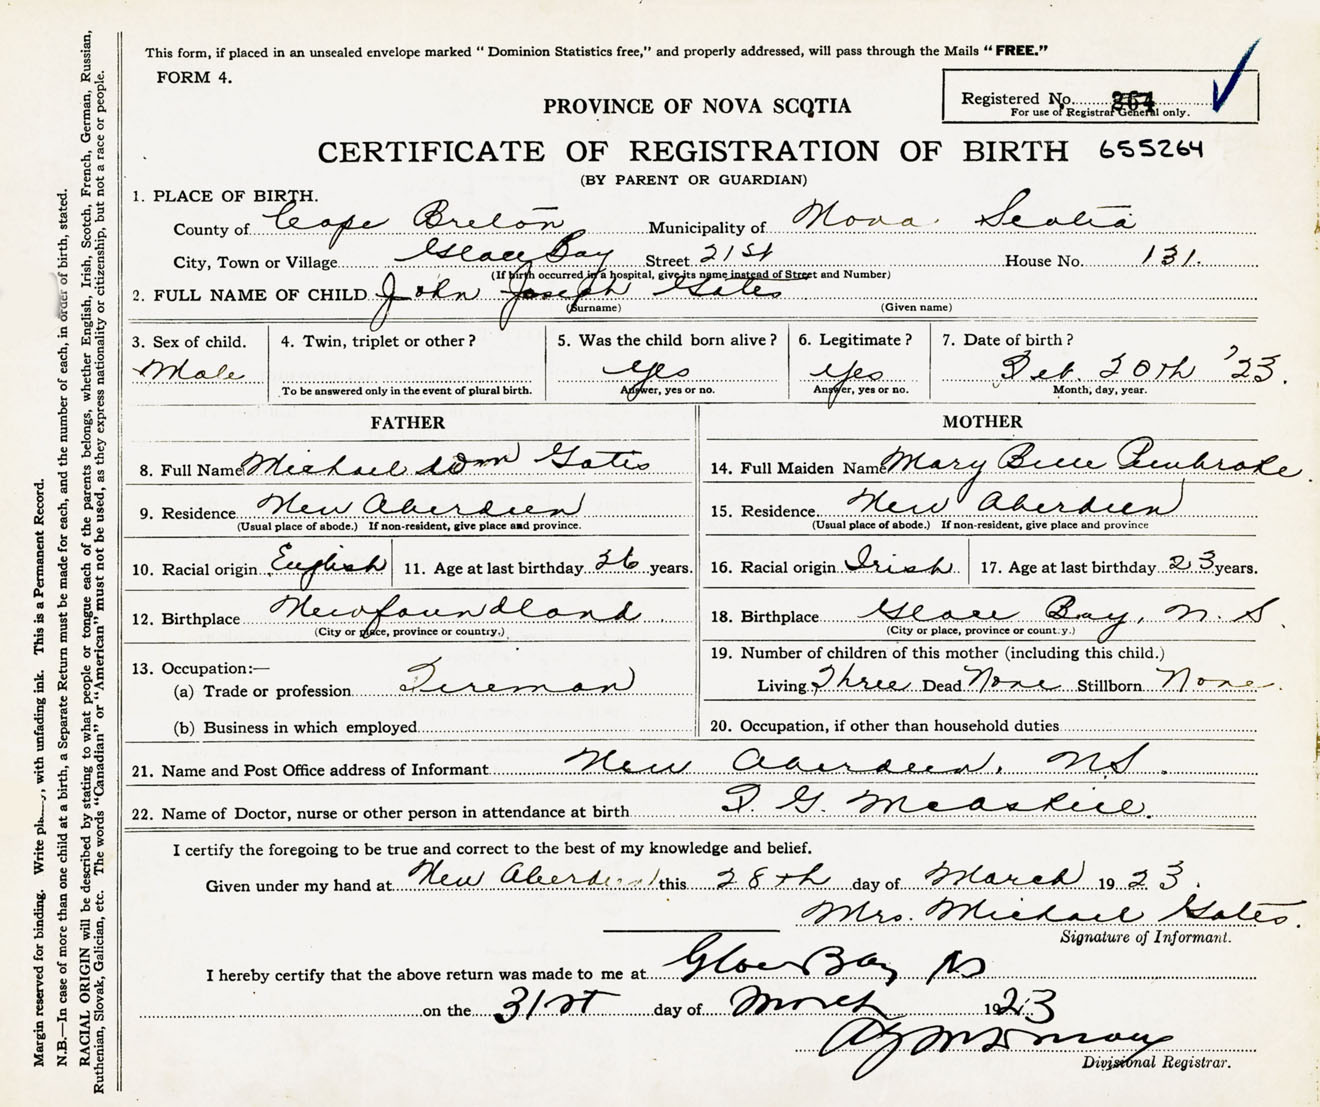 This form, if placed in an unsealed envelope marked " Dominion Statistics free," and properly addressed, will pass through the Mails " FREE."
FORM 4.
Registered No. 264
For use of Registrar General only.
PROVINCE OF NOVA SCOTIA
CERTIFICATE OF REGISTRATION OF BIRTH 655264
(BY PARENT OR GUARDIAN)
1. PLACE OF BIRTH.
County of Cape Breton Municipality of Nova Scotia
City, Town or Village Glace Bay Street 21st House No. 131.
(If birth occurred in a hospital, give its name instead of Street and Number)
2. FULL NAME OF CHILD John Joseph Gates
(Surname) (Given name)
3. Sex of child. 4. Twin, triplet or other? 5. Was the child born alive? 6. Legitimate? 7. Date of birth?
Male yes yes Feb. 20th '23.
To be answered only in the event of plural birth. Answer, yes or no. Answer, yes or no. Month, day, year.
FATHER
8. Full Name Michael Gates
9. Residence New Aberdeen
(Usual place of abode.) If non-resident, give place and province.
10. Racial origin English 11. Age at last birthday 26 years.
12. Birthplace Newfoundland
(City or place, province or country.)
13. Occupation:—
(a) Trade or profession Fireman
(b) Business in which employed
MOTHER
14. Full Maiden Name Mary Pembroke.
15. Residence New Aberdeen
(Usual place of abode.) If non-resident, give place and province
16. Racial origin Irish 17. Age at last birthday 23 years.
18. Birthplace Glace Bay, N. S.
(City or place, province or country.)
19. Number of children of this mother (including this child.)
Living Three Dead None Stillborn None.
20. Occupation, if other than household duties
21. Name and Post Office address of Informant New Aberdeen. N.S.
22. Name of Doctor, nurse or other person in attendance at birth G. McAskill.
I certify the foregoing to be true and correct to the best of my knowledge and belief.
Given under my hand at New Aberdeen this 28th day of March 1923.
Mrs. Michael Gates.
Signature of Informant.
I hereby certify that the above return was made to me at Glace Bay NS
on the 31st day of March 1923
Divisional Registrar.
Margin reserved for binding. Write with unfading ink. This is a Permanent Record.
N.B.—In case of more than one child at a birth, a Separate Return must be made for each, and the number of each, in order of birth, stated.
RACIAL ORIGIN will be described by stating to what people or tongue each of the parents belongs, whether English, Irish, Scotch, French, German, Russian,
Ruthenian, Slovak, Galician, etc. The words "Canadian" or "American" must not be used, as they express nationality or citizenship, but not a race or people.